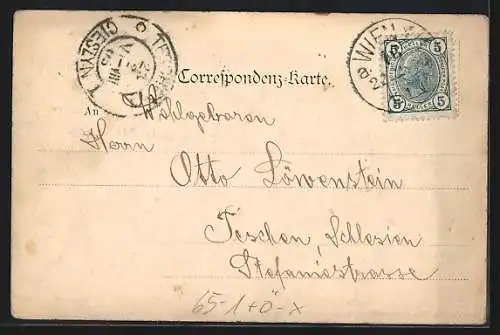 TESCHEN
CIESZYN
WIEN
5 5
5 5
Correspondenz-Karte.
An Wohlgeboren
Herrn
Otto Löwenstein
Teschen, Schlesien
Stefaniestrasse
65-1+0-x